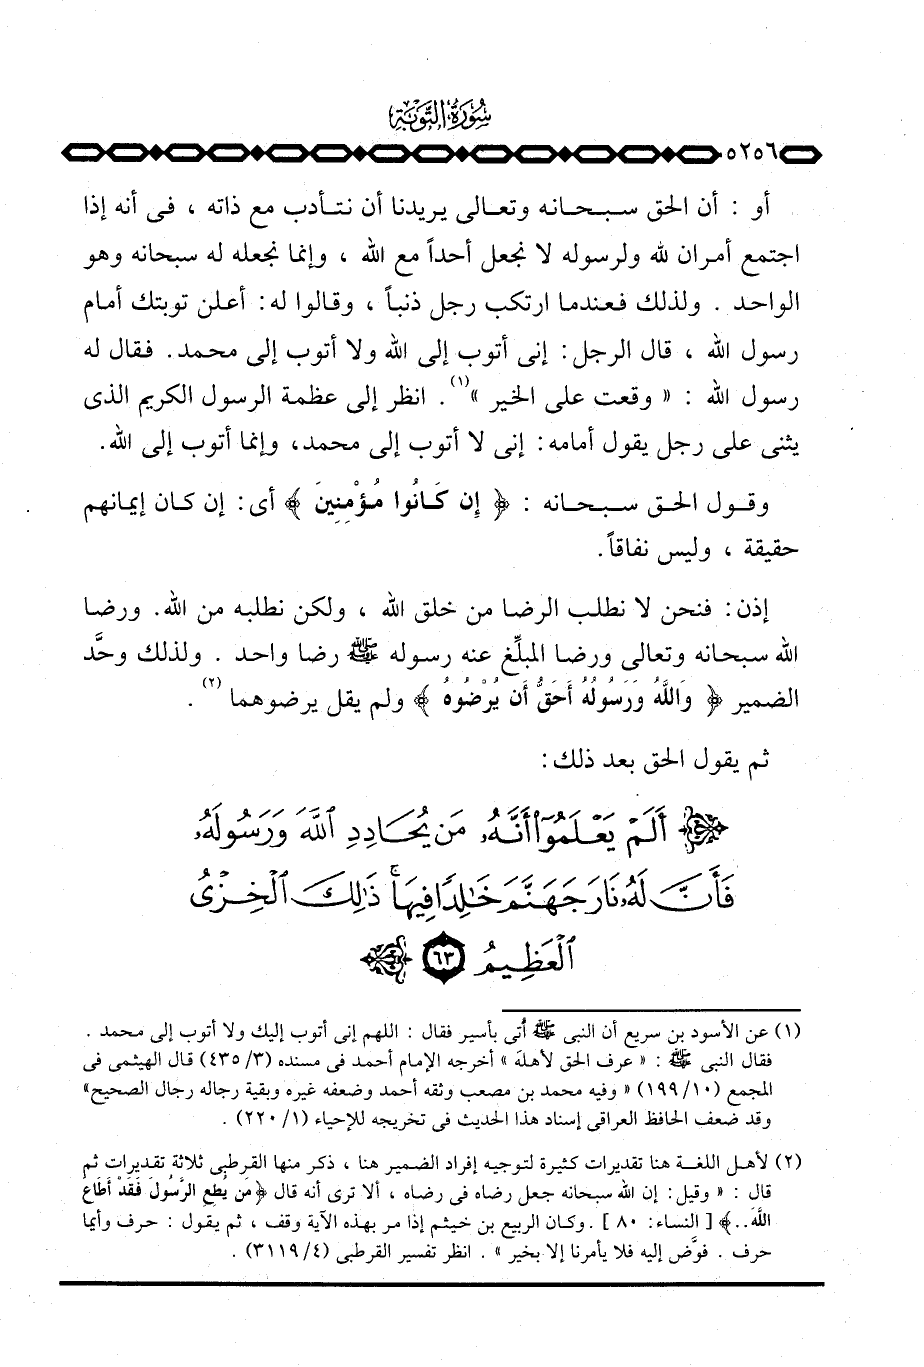 سُورَةُ التَّوْبَةِ
٥٢٥٦
أو : أن الحق سبحانه وتعالى يريدنا أن نتأدب مع ذاته ، فى أنه إذا
اجتمع أمران لله ولرسوله لا نجعل أحداً مع الله ، وإنما نجعله له سبحانه وهو
الواحد . ولذلك فعندما ارتكب رجل ذنباً ، وقالوا له: أعلن توبتك أمام
رسول الله ، قال الرجل: إنى أتوب إلى الله ولا أتوب إلى محمد. فقال له
رسول الله : « وقعت على الخير »(١). انظر إلى عظمة الرسول الكريم الذى
يثنى على رجل يقول أمامه: إنى لا أتوب إلى محمد، وإنما أتوب إلى الله.
وقول الحق سبحانه : ﴿ إِن كَانُوا مُؤْمِنِينَ ﴾ أى: إن كان إيمانهم
حقيقة ، وليس نفاقاً.
إذن: فنحن لا نطلب الرضا من خلق الله ، ولكن نطلبه من الله. ورضا
الله سبحانه وتعالى ورضا المبلِّغ عنه رسوله ﷺ رضا واحد . ولذلك وحَّد
الضمير ﴿ وَاللَّهُ وَرَسُولُهُ أَحَقُّ أَن يُرْضُوهُ ﴾ ولم يقل يرضوهما (٢) .
ثم يقول الحق بعد ذلك:
﴿ أَلَمْ يَعْلَمُوٓا۟ أَنَّهُۥ مَن يُحَادِدِ ٱللَّهَ وَرَسُولَهُۥ
فَأَنَّ لَهُۥ نَارَ جَهَنَّمَ خَٰلِدًا فِيهَا ۚ ذَٰلِكَ ٱلْخِزْىُ
ٱلْعَظِيمُ ٦٣ ﴾
(١) عن الأسود بن سريع أن النبى ﷺ أُتى بأسير فقال : اللهم إنى أتوب إليك ولا أتوب إلى محمد .
فقال النبى ﷺ : « عرف الحق لأهله » أخرجه الإمام أحمد فى مسنده (٤٣٥/٣) قال الهيثمى فى
المجمع (١٩٩/١٠) « وفيه محمد بن مصعب وثقه أحمد وضعفه غيره وبقية رجاله رجال الصحيح»
وقد ضعف الحافظ العراقى إسناد هذا الحديث فى تخريجه للإحياء (٢٢٠/١) .
(٢) لأهل اللغة هنا تقديرات كثيرة لتوجيه إفراد الضمير هنا ، ذكر منها القرطبى ثلاثة تقديرات ثم
قال : « وقيل: إن الله سبحانه جعل رضاه فى رضاه ، ألا ترى أنه قال ﴿مَن يُطِعِ الرَّسُولَ فَقَدْ أَطَاعَ
اللَّهَ..﴾ [ النساء: ٨٠ ] .وكان الربيع بن خيثم إذا مر بهذه الآية وقف ، ثم يقول : حرف وأيما
حرف . فوَّض إليه فلا يأمرنا إلا بخير » . انظر تفسير القرطبى (٣١١٩/٤) .